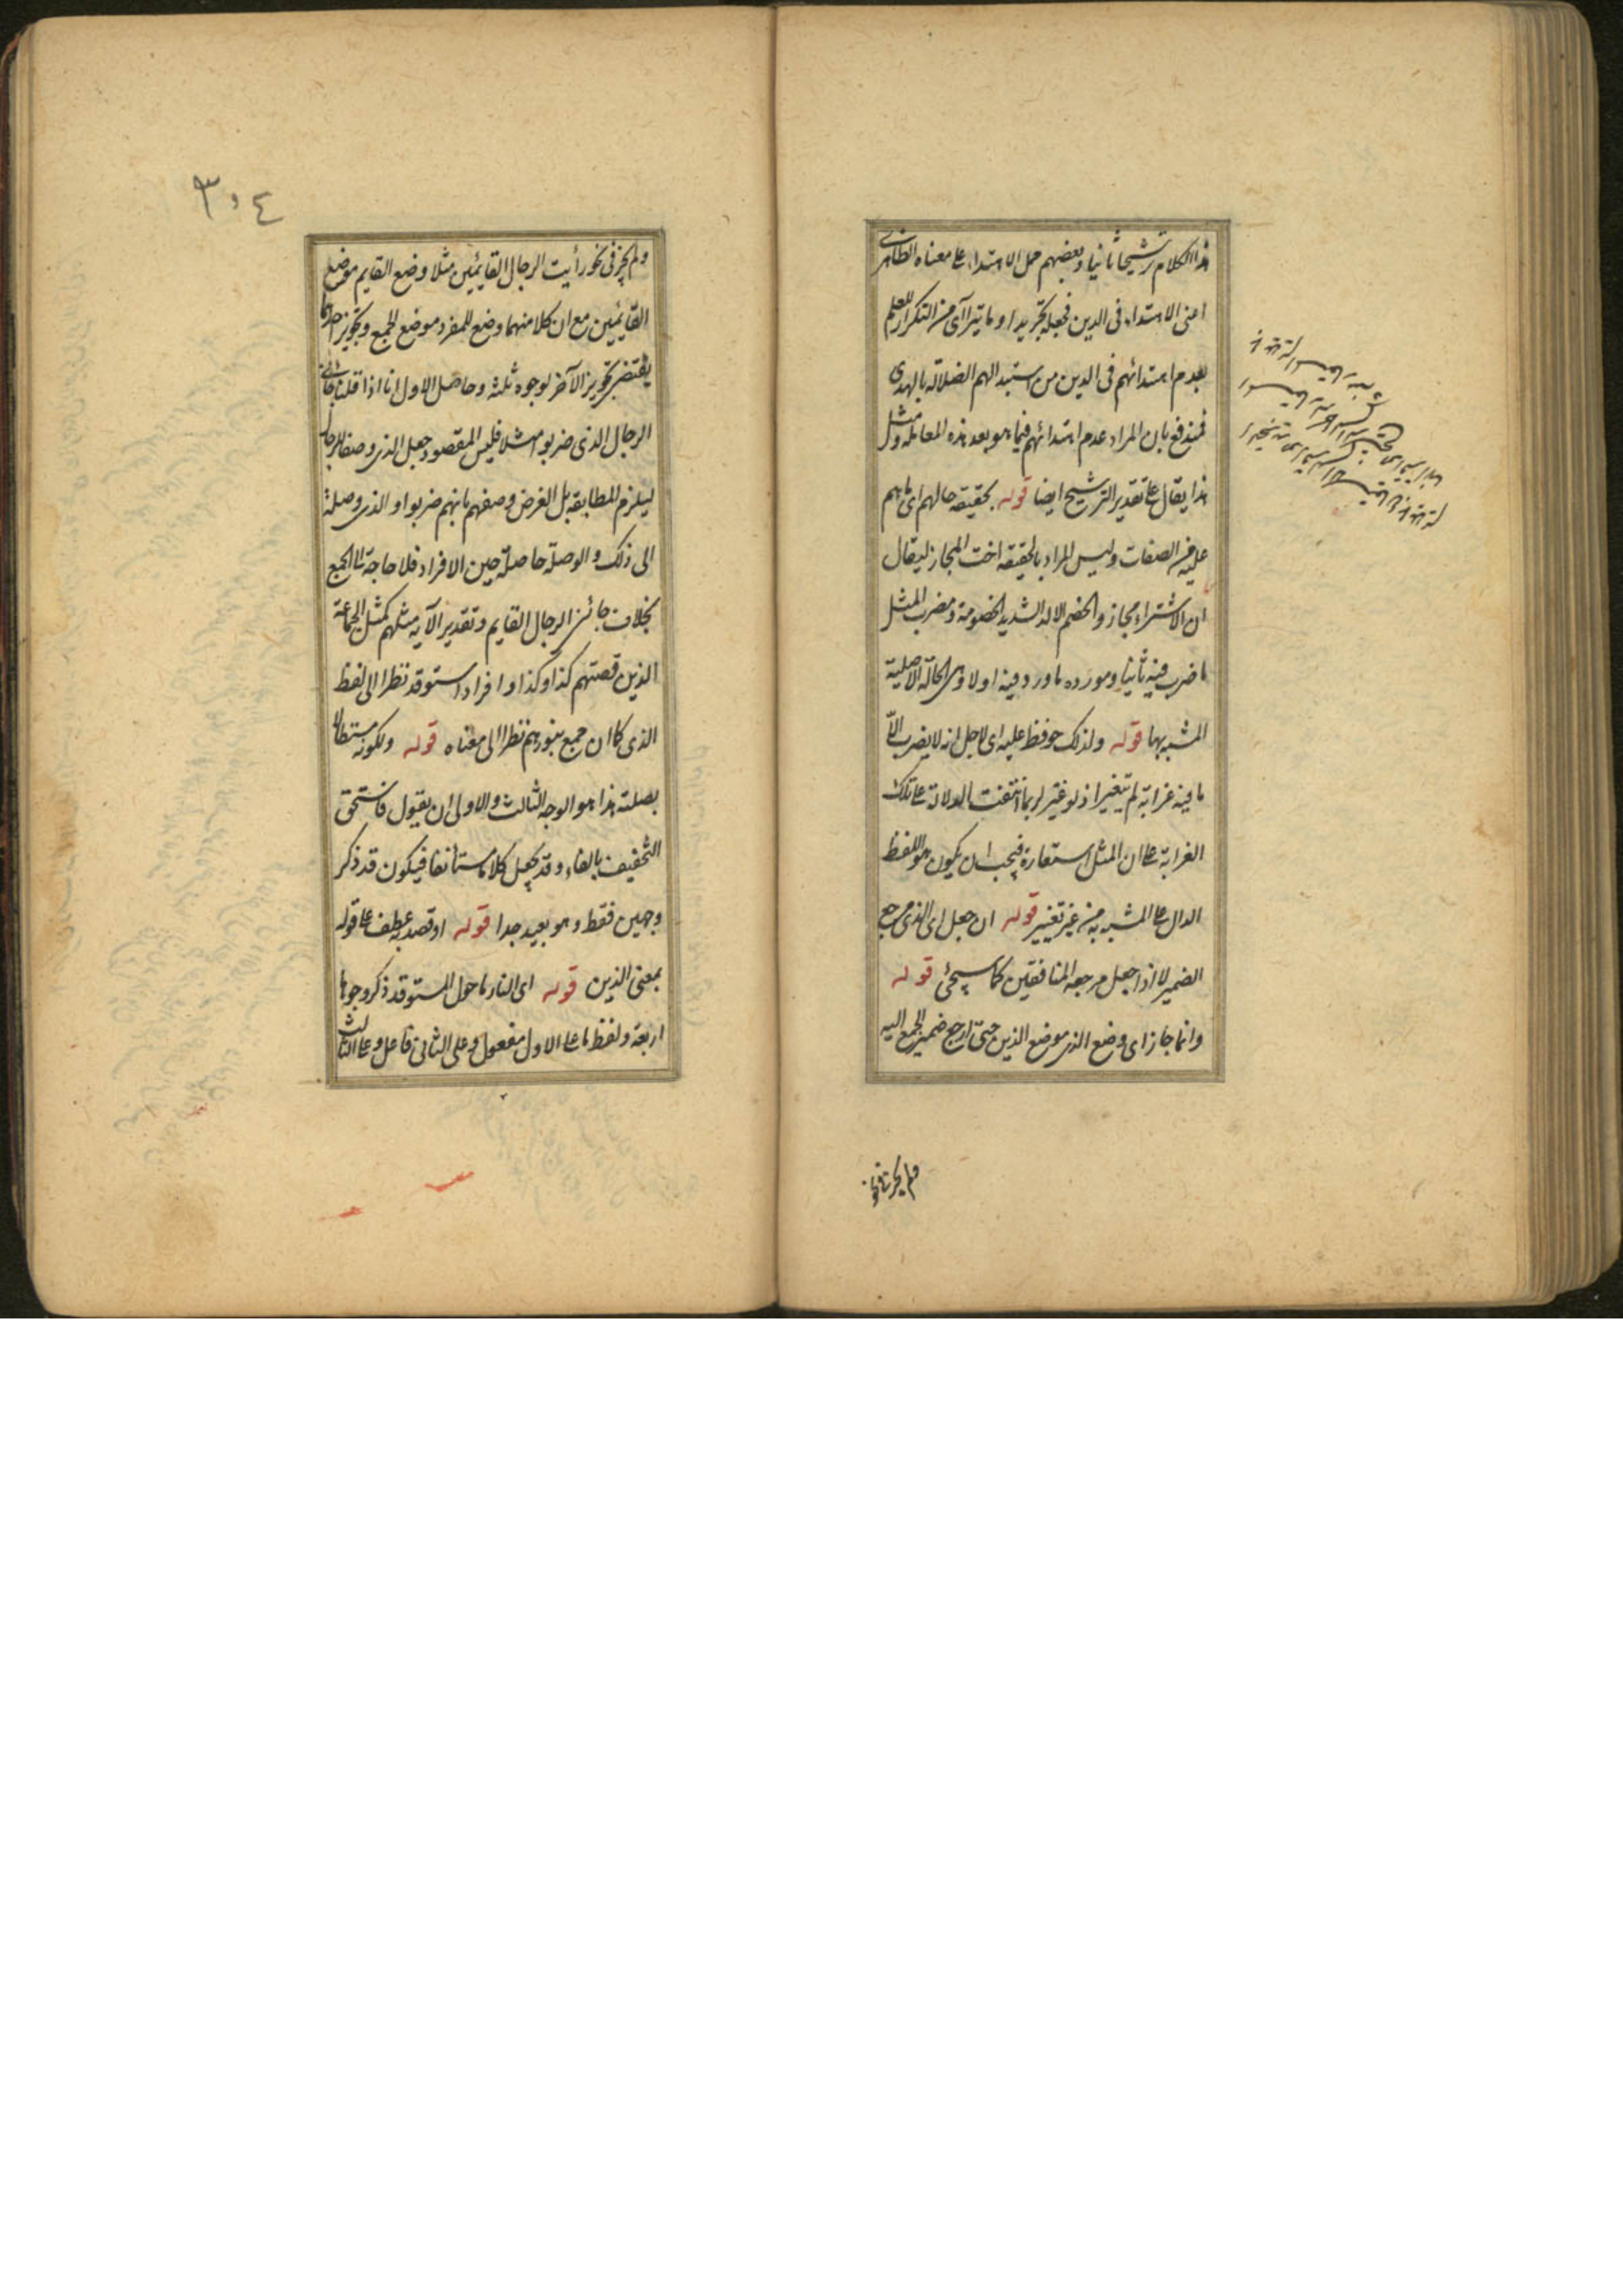 هذا الكلام ترشيحا ثانيا وبعضهم حمل الاهتداء على معناه الظاهرى
اعنى الاهتداء فى الدين فجعله تجريدا وما يترا آى من التكرار للعلم
بعدم اهتدائهم فى الدين من استبدالهم الضلالة بالهدى
فمندفع بان المراد عدم اهتدائهم فيما هو بعد هذه المعاملة ومثل
هذا يقال على تقدير الترشيح ايضا قوله بحقيقة حالهم اى ما هم
عليه من الصفات وليس المراد بالحقيقة اخت المجاز ليقال
ان الاشتراء مجاز والخصم الالد الشديد الخصومة ومضرب المثل
ما ضرب فيه ثانيا ومورده ما ورد فيه اولا وهى الحالة الاصلية
المشبه بها قوله ولذلك حوفظ عليه اى لاجل انه لا يضرب الا
ما فيه غرابة لم يتغير اذ لو غير لربما انتفت الدلالة على تلك
الغرابة على ان المثل استعارة فيجب ان يكون هو اللفظ
الدال على المشبه به من غير تغيير قوله ان جعل اى الذى مرجع
الضمير لا اذا جعل مرجعه المنافقين كما سيجئ قوله
وانما جاز اى وضع الذى موضع الذين حتى ارجع ضمير الجمع اليه
ولم يجز فى نحو رأيت الرجال القايمين مثلا وضع القايم موضع
القائمين مع ان كلا منهما وضع للمفرد موضع الجمع وتجويز احدهما
يقتضى تجويز الآخر لوجوه ثلثة وحاصل الاول انا اذا قلنا جائنى
الرجال الذى ضربوا مثلا فليس المقصود جعل الذى وصفا للرجال
ليلزم المطابقة بل الغرض وصفهم بانهم ضربوا والذى وصلة
الى ذلك والوصلة حاصلة حين الافراد فلا حاجة الى الجمع
بخلاف جائنى الرجال القايم وتقدير الآية مثلهم كمثل الجماعة
الذين قصتهم كذا وكذا وافراد استوقد نظرا الى لفظ
الذى كما ان جمع بنورهم نظرا الى معناه قوله ولكونه مستطالا
بصلته هذا هو الوجه الثالث والاولى ان يقول فاستحق
التخفيف بالفاء وقد يجعل كلاما مستأنفا فيكون قد ذكر
وجهين فقط وهو بعيد جدا قوله او قصد به عطف على قوله
بمعنى الذين قوله اى النار ما حول المستوقد ذكر وجوها
اربعة ولفظ ما على الاول مفعول وعلى الثانى فاعل وعلى الثالث
٣٠٤